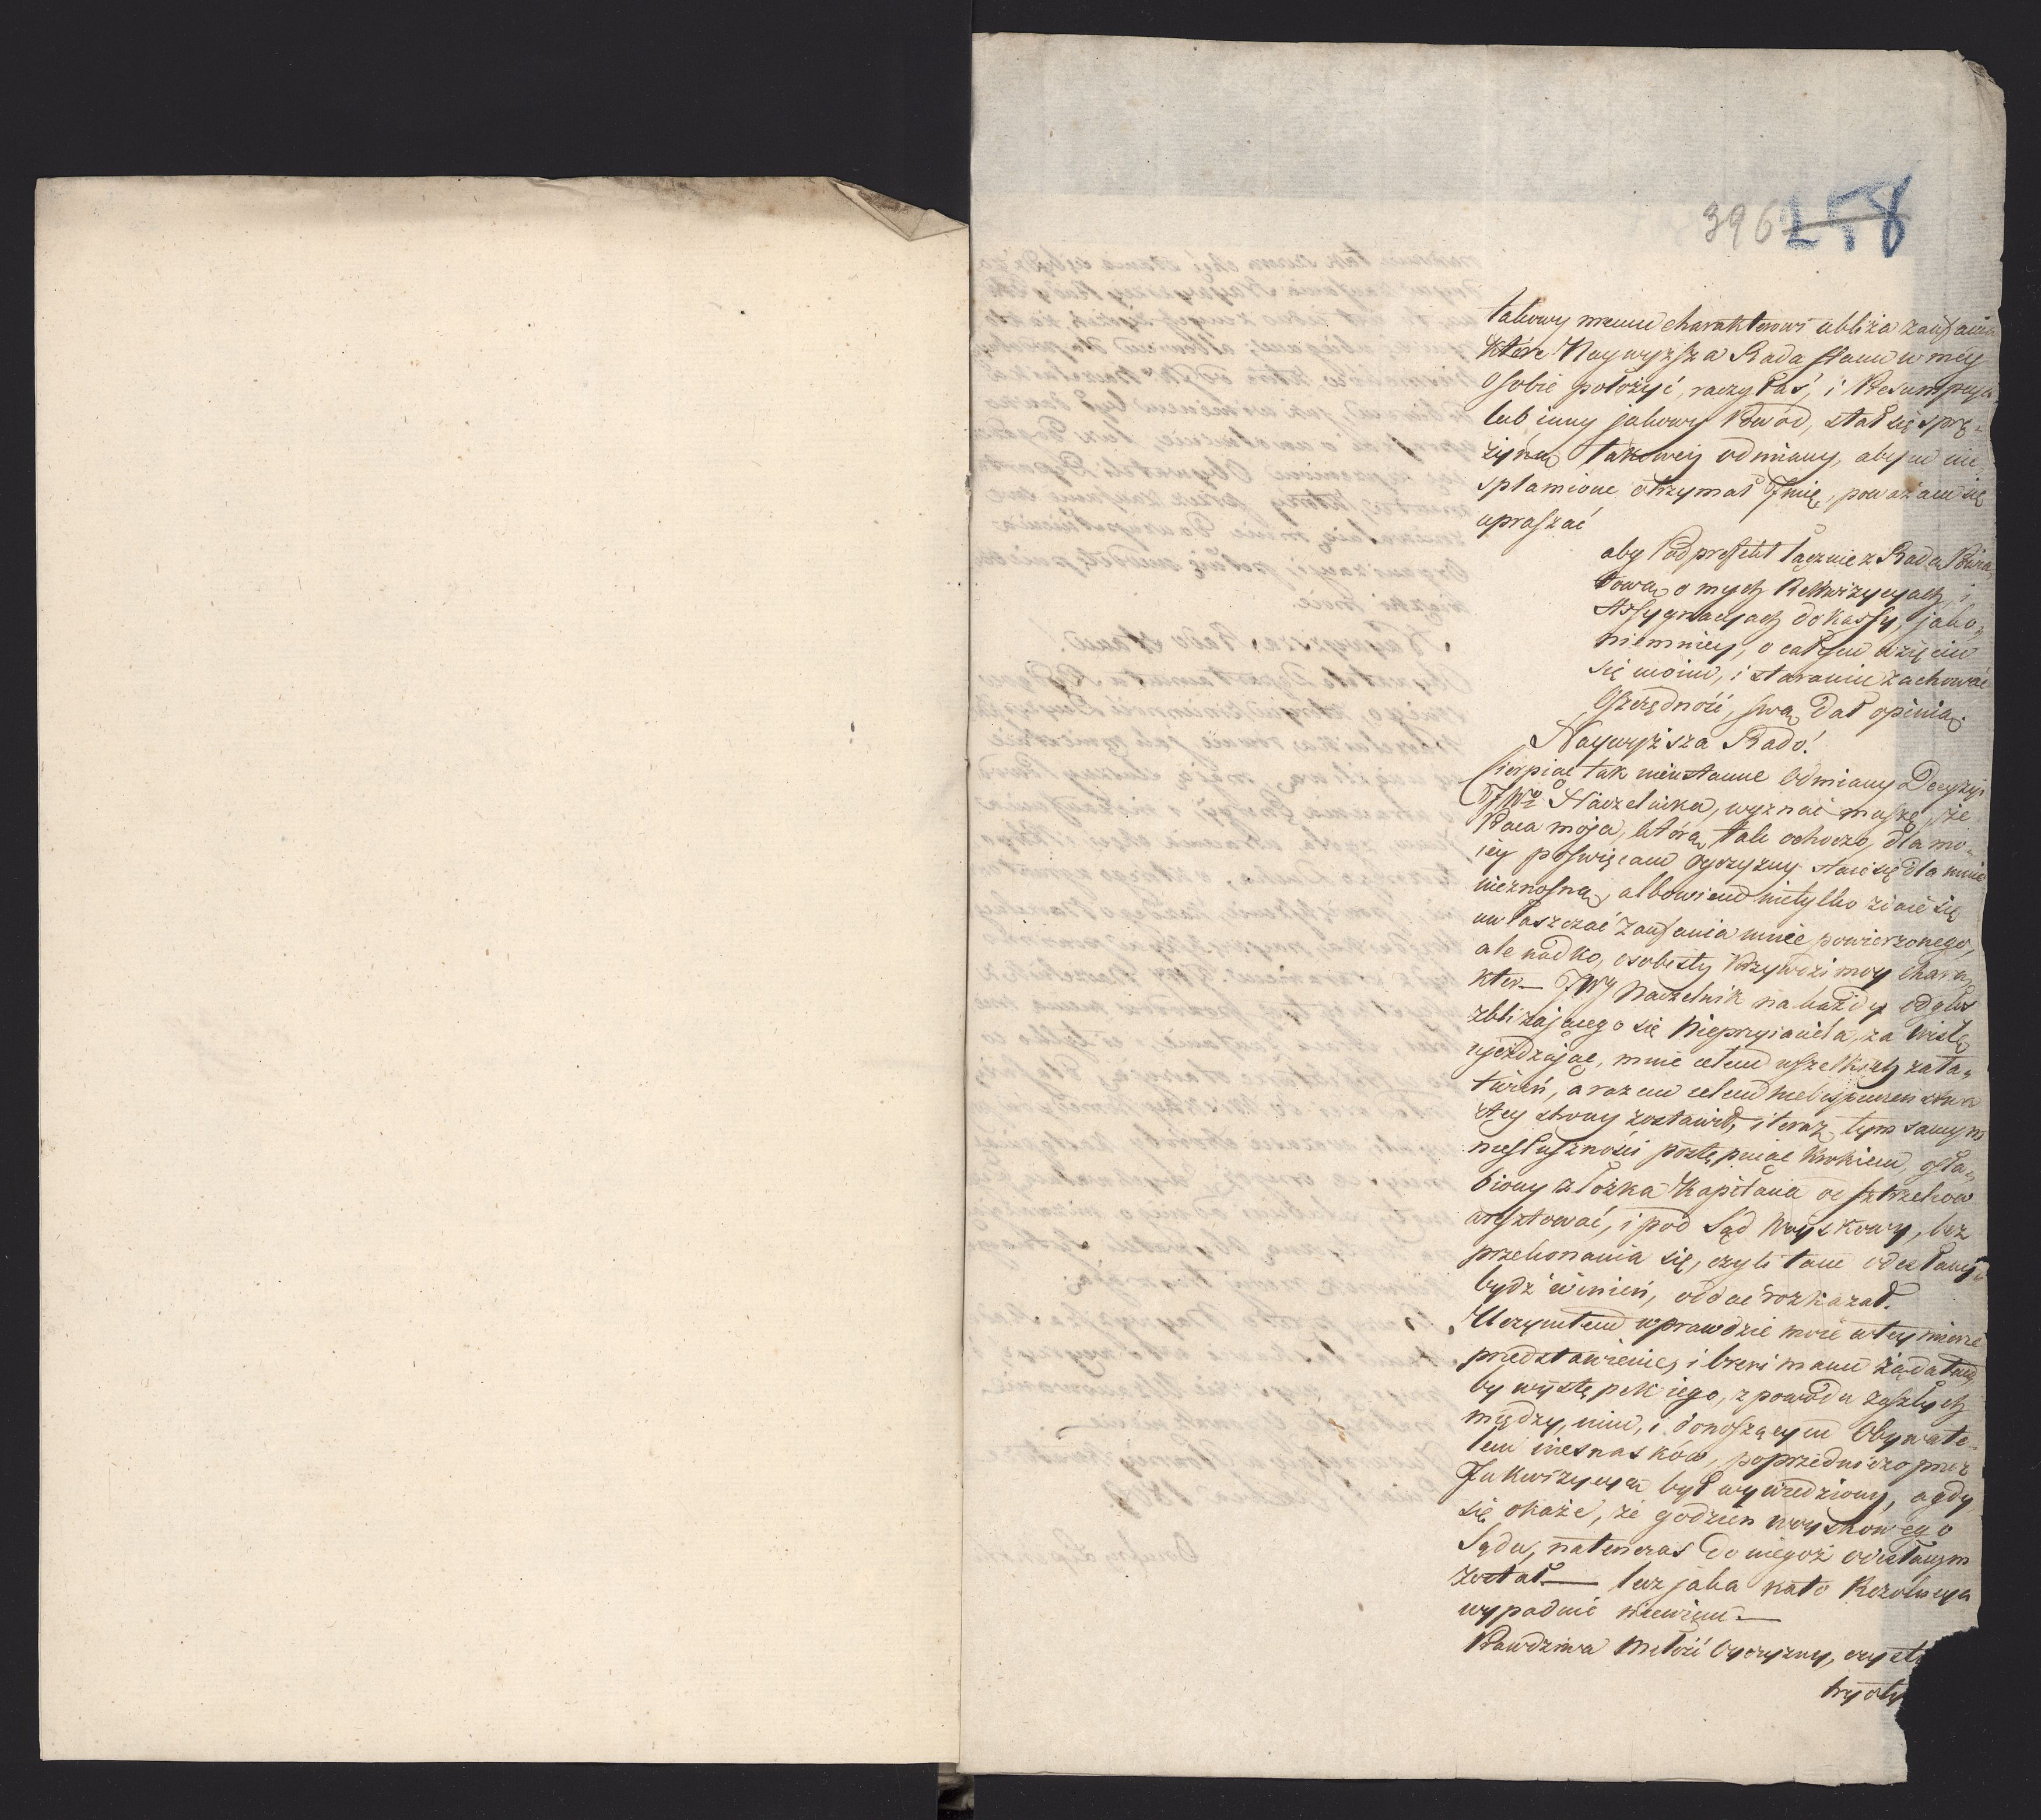 396 258
takowy memu charakterowi ubliża zaufaniu
które Naywyższa Rada Stanu w mey
osobie położyć raczyłaś, i Presumpcya
lub inny jakowy Powód, stał się sprę-
żyną takowey odmiany, abym nie
splamione otrzymał Imię, poważam się
upraszać
aby Podprefekt łącznie z Radą Powia-
tową o mych Rekwizycyach, i
Assygnacyach do kassy, jako
niemniey, o całym wzięciu
się moim, i staranie zachować
Oszczędność, swą dał opinią.
Naywyższa Rado!
Cierpiąc tak nieustanne Odmiany Decyzyi
JWo Naczelnika, wyznać muszę, że
Praca moja, którą tak ochoczo, dla mo-
iey poświęcam Oyczyzny staie się dla mnie
nieznosną, albowiem nietylko zdaie się
uwłaszczać Zaufania mnie powierzonego,
ale nadto, osobisty krzywdzi moy chara-
kter — JW Naczelnik na każdy odgłos
zbliżającego się Nieprzyiaciela, za Wisłę
ujeżdżając, mnie celem wszelkich zała-
twień, a razem celem niebespieczeństwa
z tey strony zostawił, i teraz tym samym
niesłuszności postępuiąc krokiem, osła-
biony z łóżka Kapitana de Strzelców
aresztować, i pod Sąd Woyskowy, bez
przekonania się, czyli tam odesłanym
bydź winien, oddać rozkazał.
Uczyniłem wprawdzie moie w tey mierze
przedstawienie, i brevi manu żądałem,
by występek iego, z powodu zaszłych
między nim, i donoszącym Obywate-
lem niesnasków, poprzedniczo przez
Inkwizycyą był wywiedziony, a gdy
się okaże, że godzien woyskowego
Sądu, natenczas do niegoż odesłanym
został — lecz jaka na to Rezolucya
wypadnie niewiem —
Prawdziwa Miłość Oyczyzny, czysta